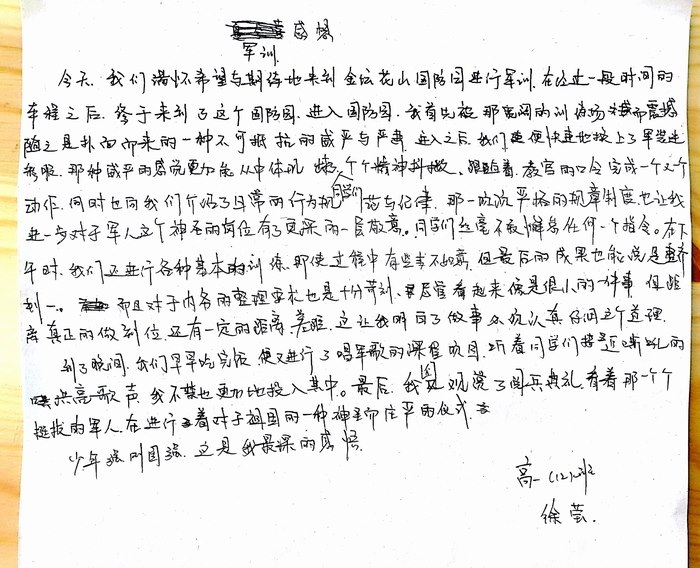 军训感悟
今天,我们满怀希望与期待地来到金坛花山国防园进行军训.在经过一段时间的
车程之后,终于来到了这个国防园.进入国防园,我首先被那宽阔的训练场所震撼
随之是扑面而来的一种不可抵抗的威严与严肃.进入之后,我们便快速地换上了军装迷
彩服.那种威严的感觉更加能从中体现.个个精神抖擞.跟随着教官的口令完成一个又个
动作.同时也向我们介绍了日常的行为规范与纪律.那一次次严格的规章制度也让我
进一步对于军人这个神圣的岗位有了更深的一层敬意.同学们丝毫不敢懈怠任何一个指令。在下
午时.我们还进行各种基本的训练,即使过程中有些差不如意.但最后的成果也能说是整齐
划一。而且对于内务的整理要求也是十分苛刻.尽管看起来像是很小的一件事 但距
离真正的做到位.还有一定的距离差距.这让我明白了做事必须认真仔细这个道理.
到了晚间,我们早早吃完饭.便又进行了唱军歌的课程项目.听着同学们接近嘶吼的
洪亮歌声 我不禁也更加地投入其中。最后,我们观赏了阅兵典礼.看着那一个个
挺拔的军人.在进行着对于祖国的一种神圣的仪式.
少年强则国强.这是我最深的感悟.
高一(12)班
徐莹.